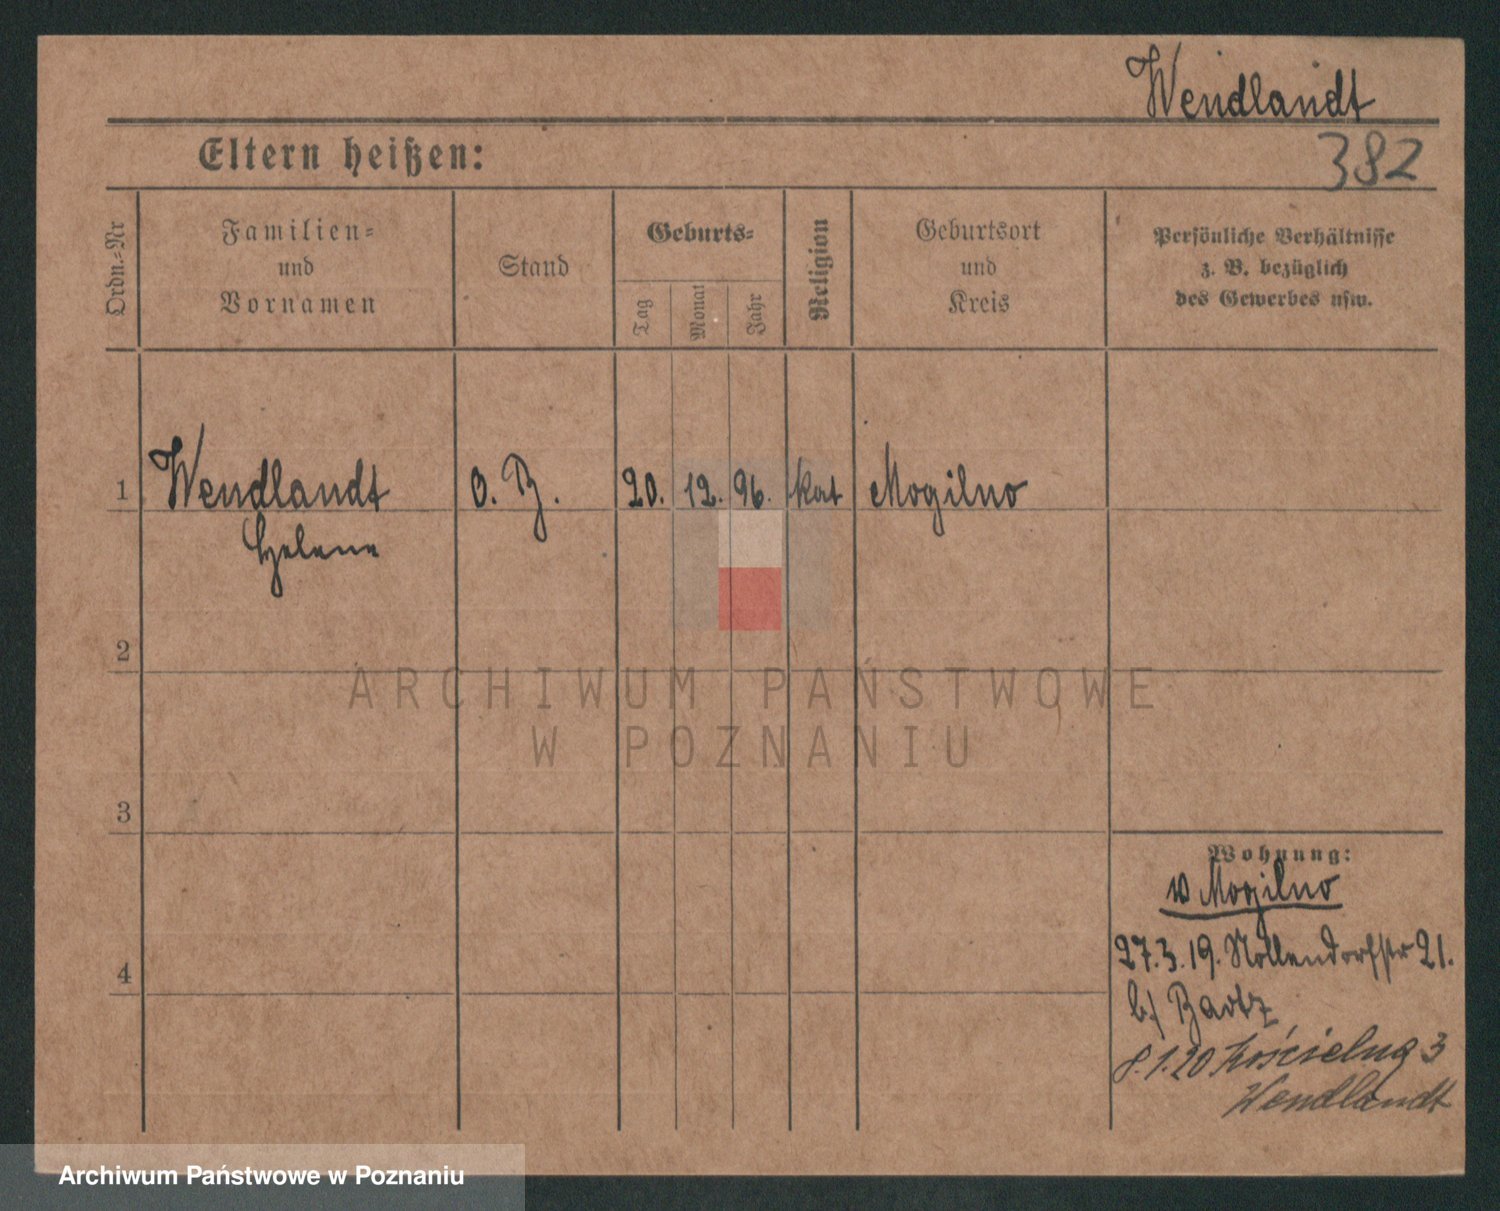 Wendlandt
Eltern heißen:
382
Ordn.-Nr
Familien-
und
Vornamen
Stand
Geburts-
Tag
Monat
Jahr
Religion
Geburtsort
und
Kreis
Persönliche Verhältnisse
z. B. bezüglich
des Gewerbes usw.
1 Wendlandt o. B. 20. 12. 96. kat Mogilno
Helene
2
3
4
Wohnung:
Mogilno
27.3.19. Nollendorfstr 21.
b/ Bartz
8.1.20 Kościelna 3
Wendlandt
ARCHIWUM PAŃSTWOWE
W POZNANIU
Archiwum Państwowe w Poznaniu